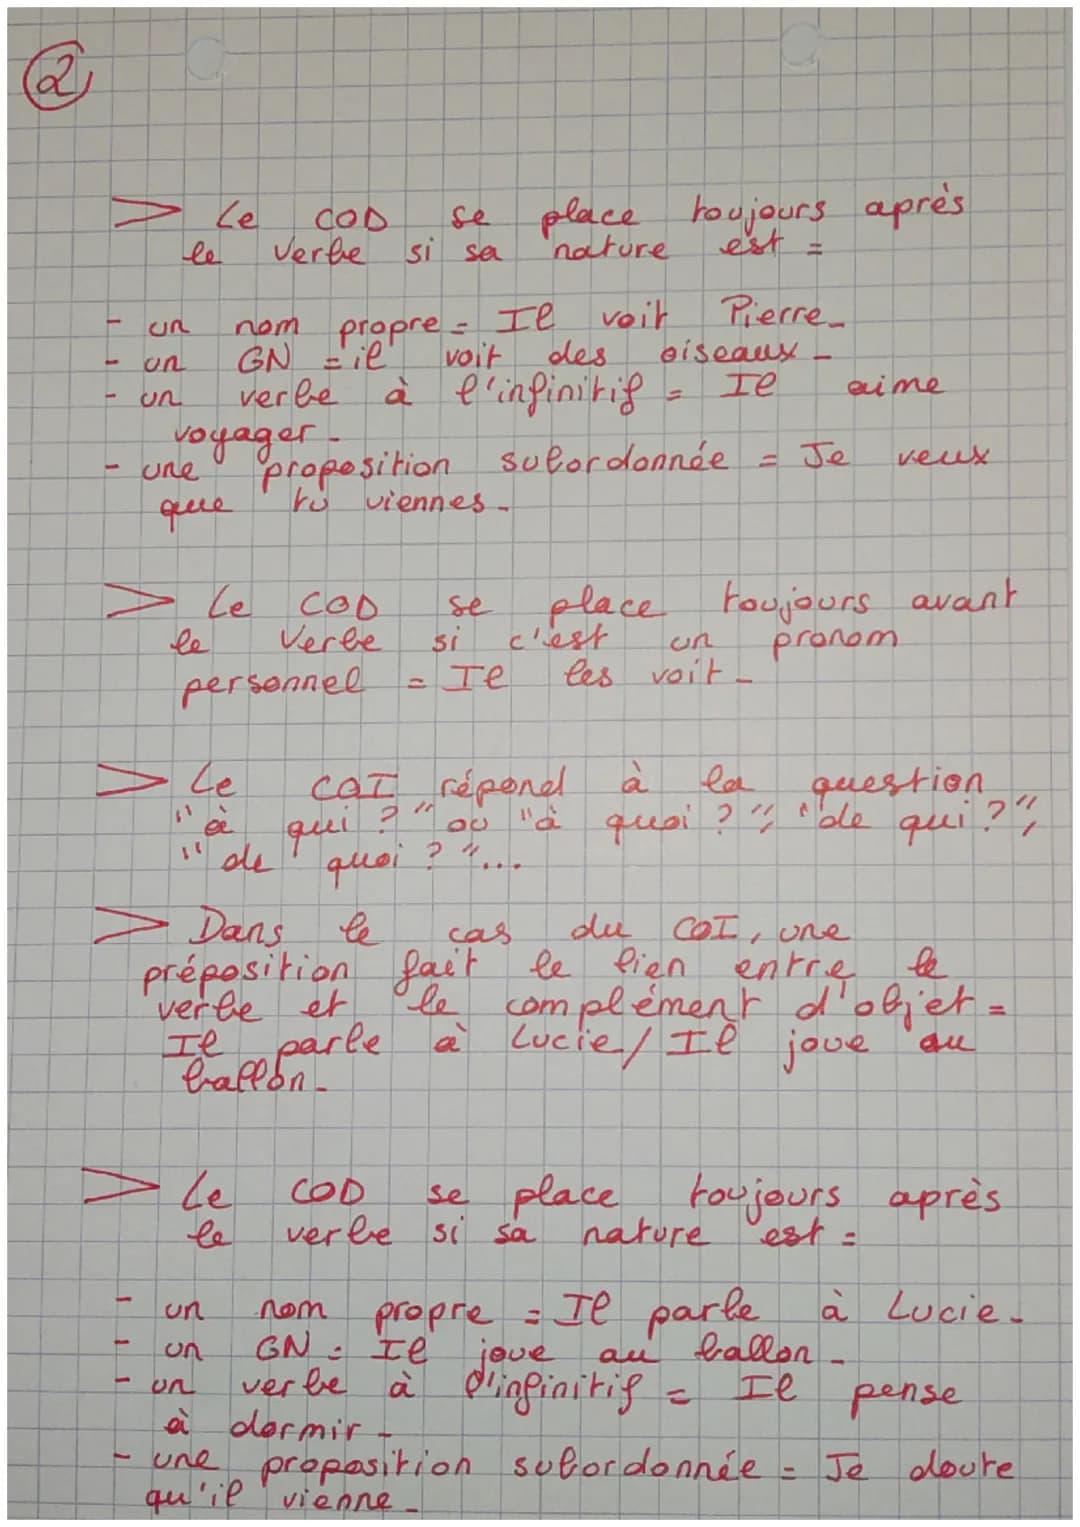 2
> Le COD se place toujours après
le verbe si sa nature est =
- un nom propre = Il voit Pierre.
- un GN = il voit des oiseaux.
- un verbe à l'infinitif = Il aime
voyager.
- une proposition subordonnée = Je veux
que tu viennes.
> Le COD se place toujours avant
le verbe si c'est un pronom
personnel = Il les voit.
> Le COI répond à la question
"à qui ?" ou "à quoi ?", "de qui ?",
"de quoi ?"...
> Dans le cas du COI, une
préposition fait le lien entre le
verbe et le complément d'objet =
Il parle à Lucie / Il joue au
ballon.
> Le COD se place toujours après
le verbe si sa nature est =
- un nom propre = Il parle à Lucie.
- un GN = Il joue au ballon.
- un verbe à l'infinitif = Il pense
à dormir.
- une proposition subordonnée = Je doute
qu'il vienne.